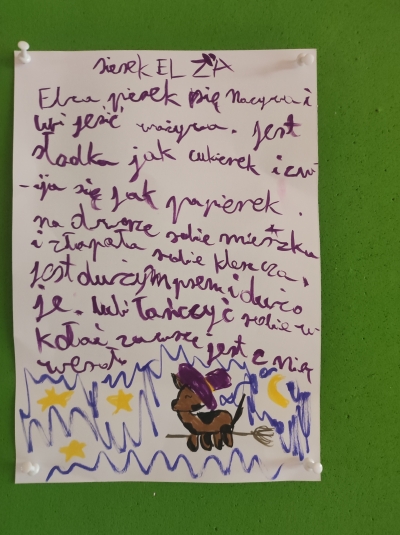 piesek ELZA
Elza piesek się nazywa i
lubi jeśćważywa. Jest
słodka jak cukierek i zwi
-ija się jak papierek.
na dworze sobie mieszka
i złapała sobie kleszcza,
jest dużym psem i dużo
je. lubi tańczyć sobie w
zawsze jest z nią
wesoło